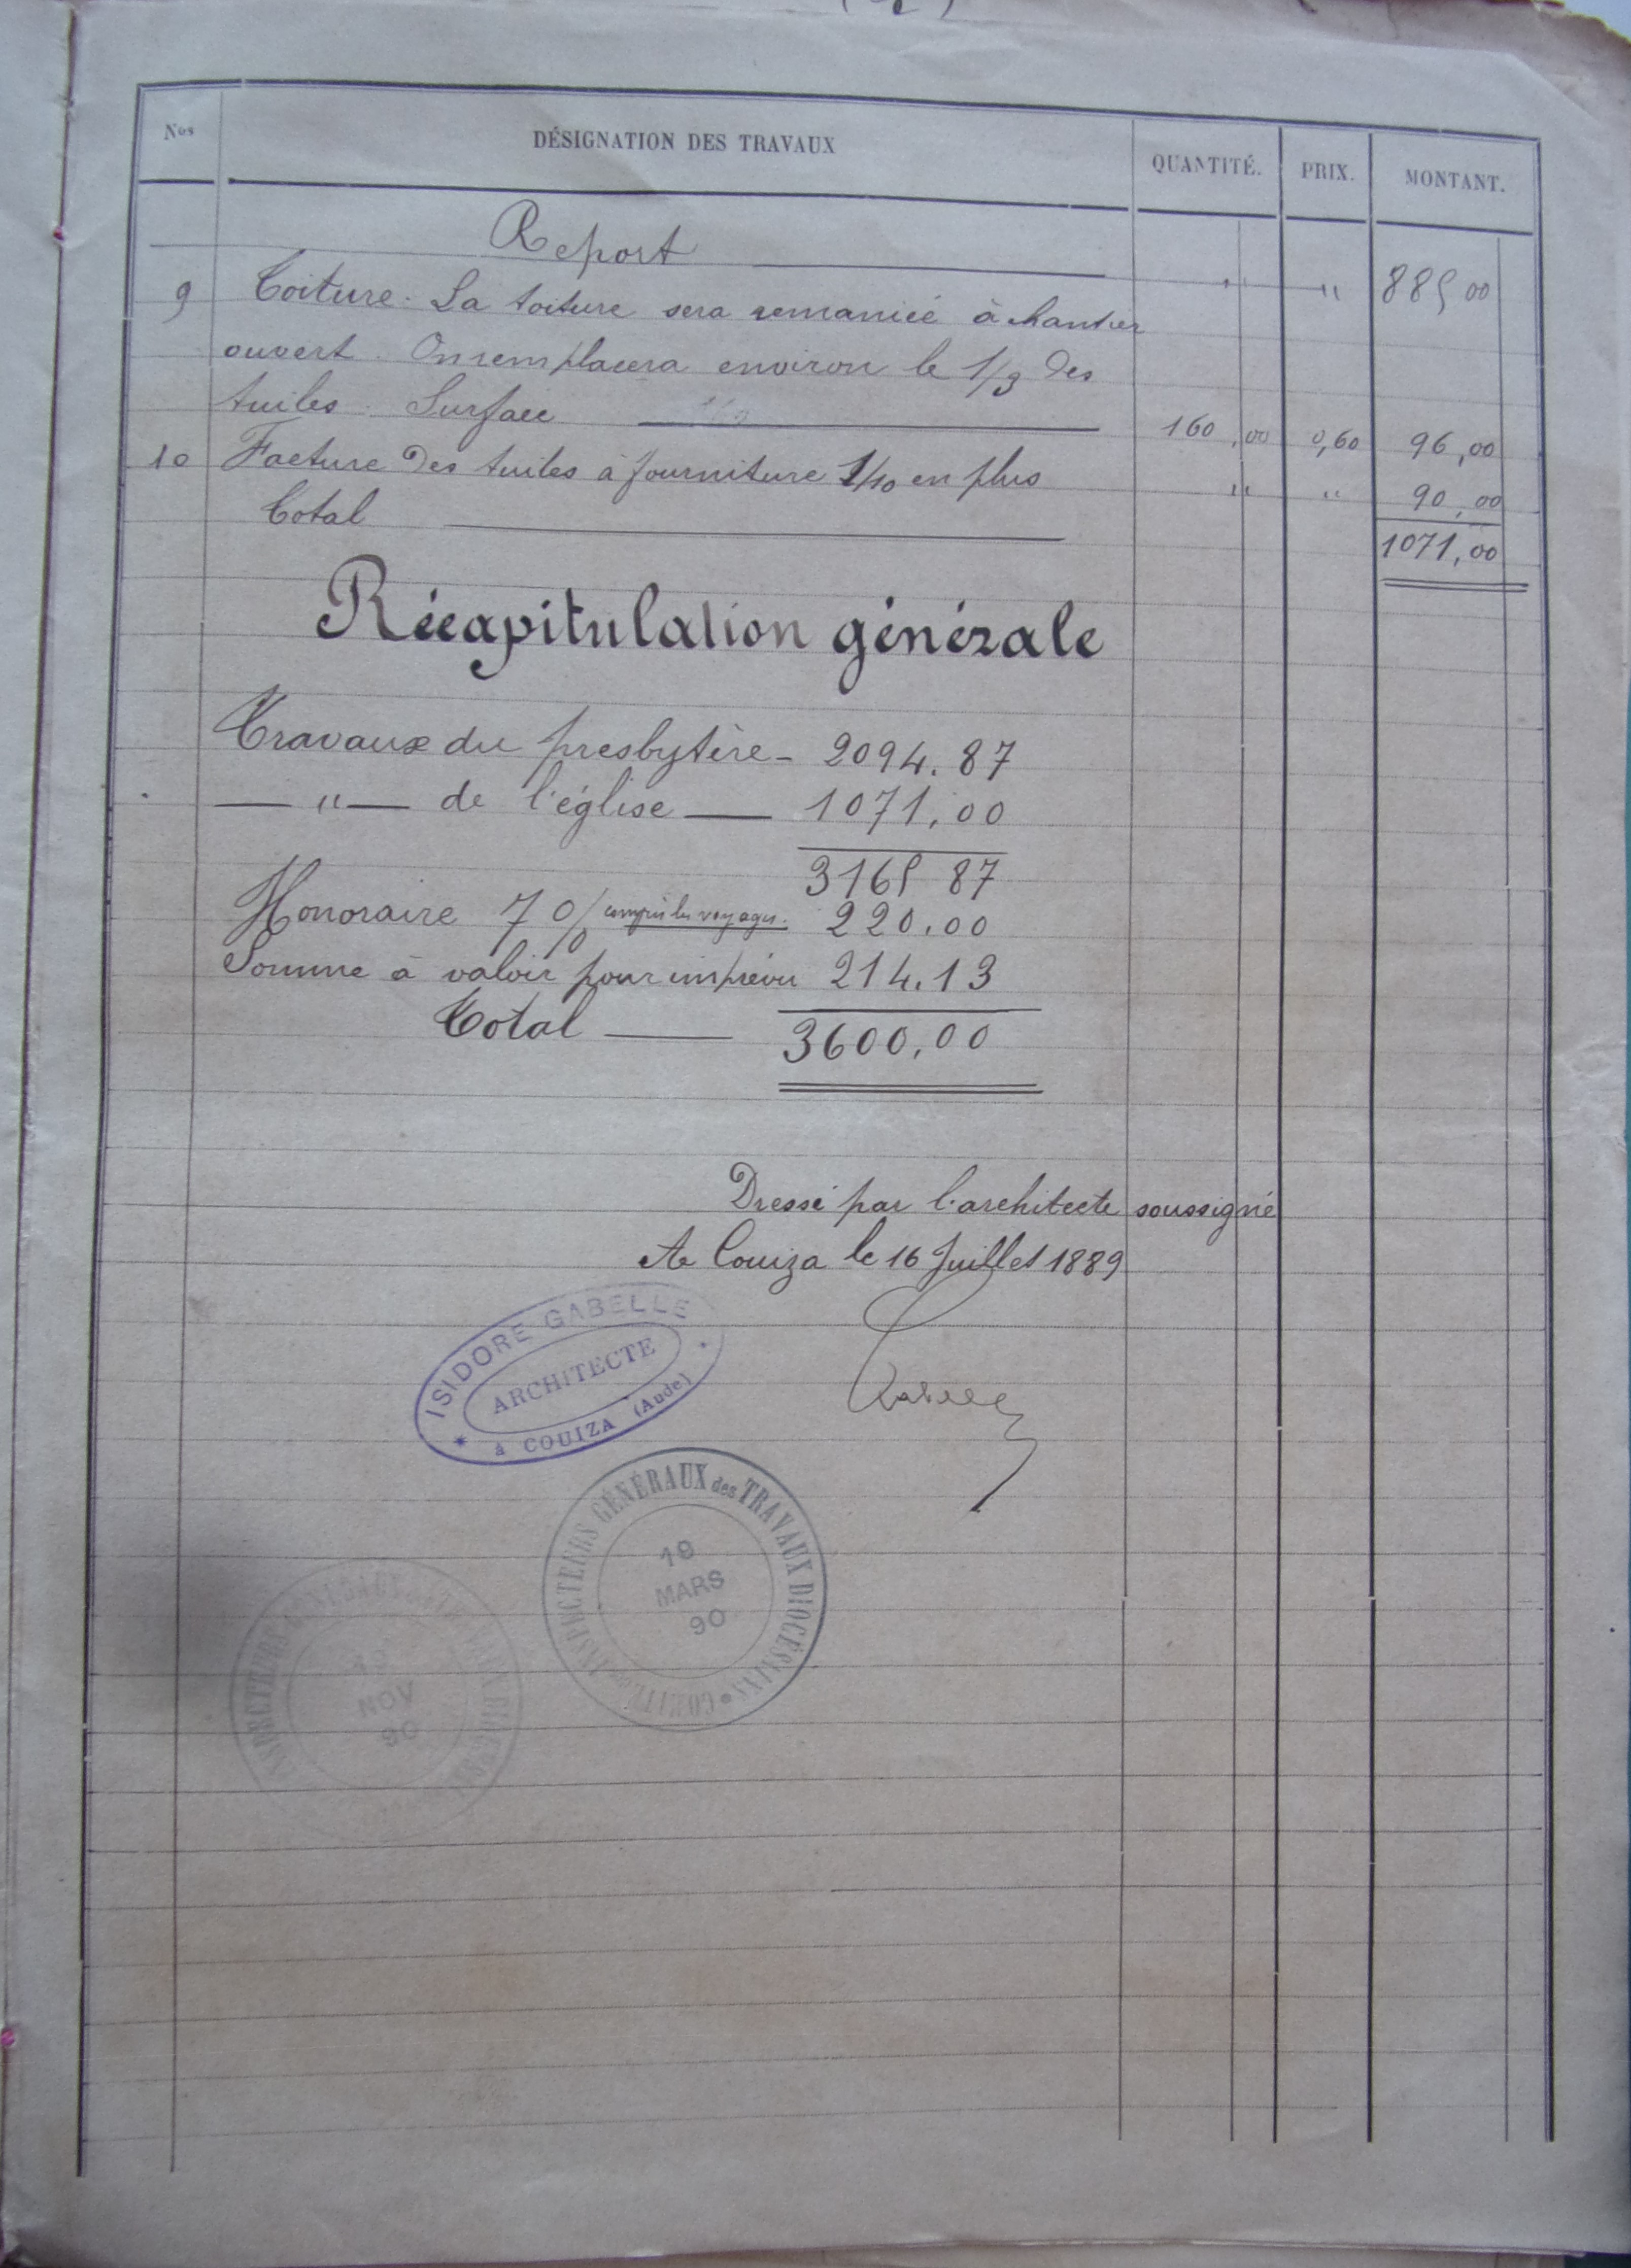 Nos DÉSIGNATION DES TRAVAUX QUANTITÉ. PRIX. MONTANT.
Report " " 885 00
9 Toiture. La toiture sera remaniée à chantier
ouvert. On remplacera environ le 1/3 des
tuiles. Surface 160,00 0,60 96,00
10 Facture des tuiles à fourniture 1/10 en plus " " 90,00
Total 1071,00
Récapitulation générale
Travaux du presbytère - 2094.87
— " — de l'église — 1071,00
3165 87
Honoraire 7 0/0 compris les voyages. 220.00
Somme à valoir pour imprévu 214.13
Total — 3600,00
Dressé par l'architecte soussigné
A Couiza le 16 Juillet 1889
ISIDORE GABELLE
ARCHITECTE
à COUIZA (Aude)
COMITÉ des INSPECTEURS GÉNÉRAUX des TRAVAUX DIOCÉSAINS
19
MARS
90
NOV
90